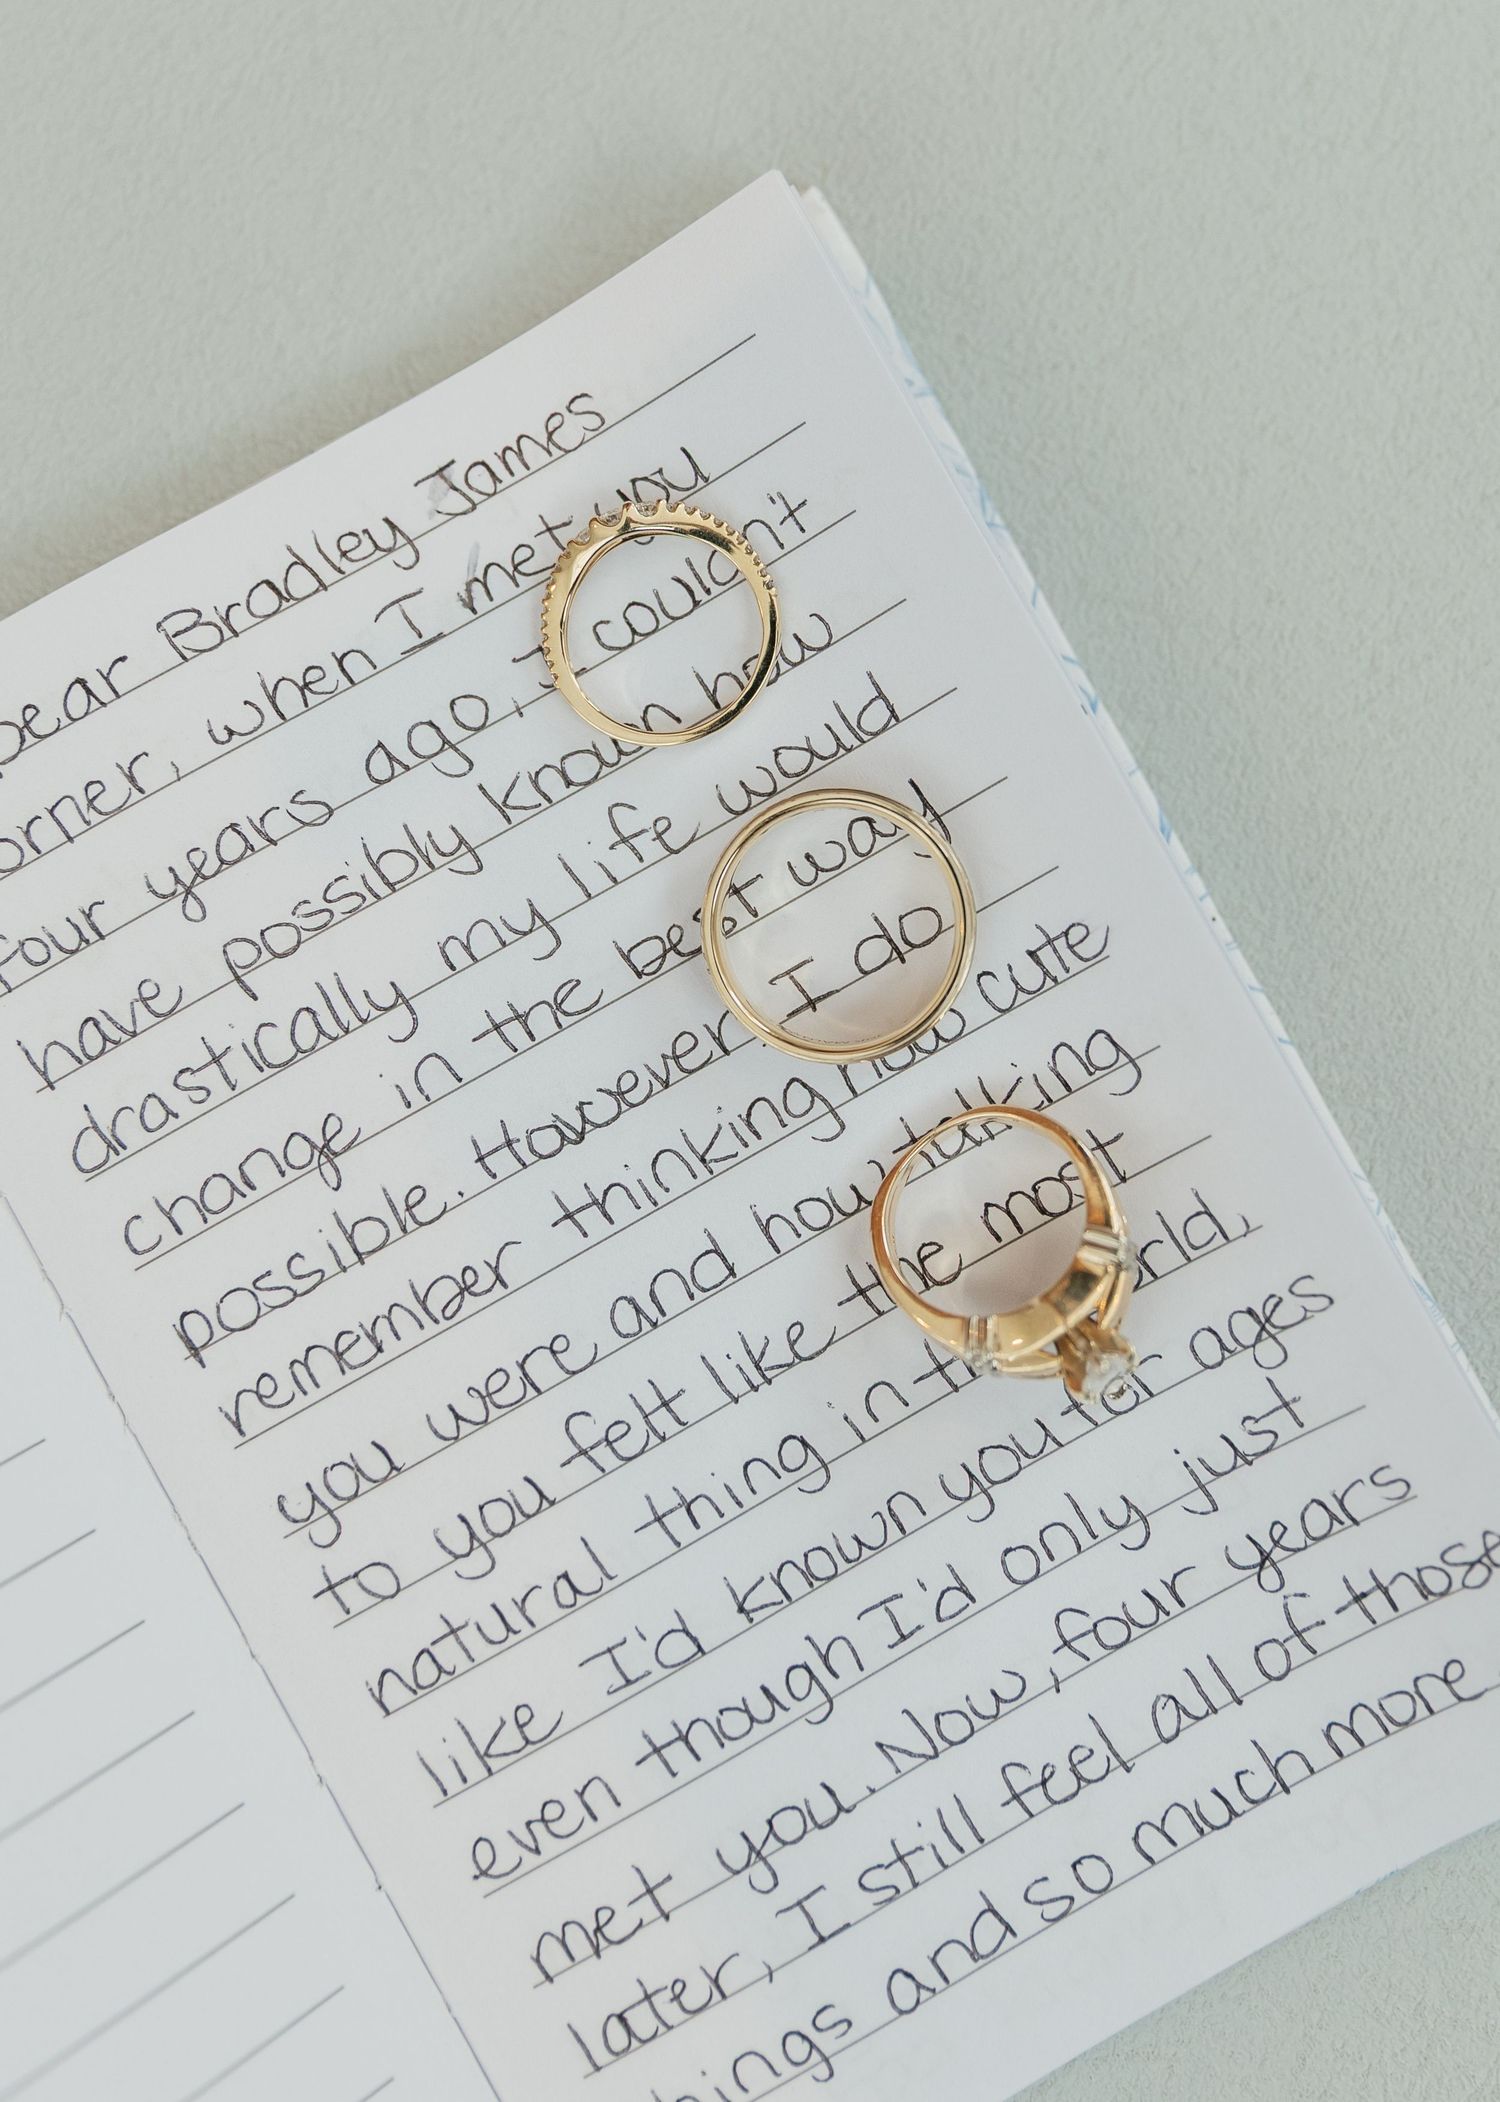 Dear Bradley James
orner, when I met you
four years ago, I couldn't
have possibly known how
drastically my life would
change in the best way
possible. However I do
remember thinking how cute
you were and how talking
to you felt like the most
natural thing in the world,
like I'd known you for ages
even though I'd only just
met you. Now, four years
later, I still feel all of those
things and so much more